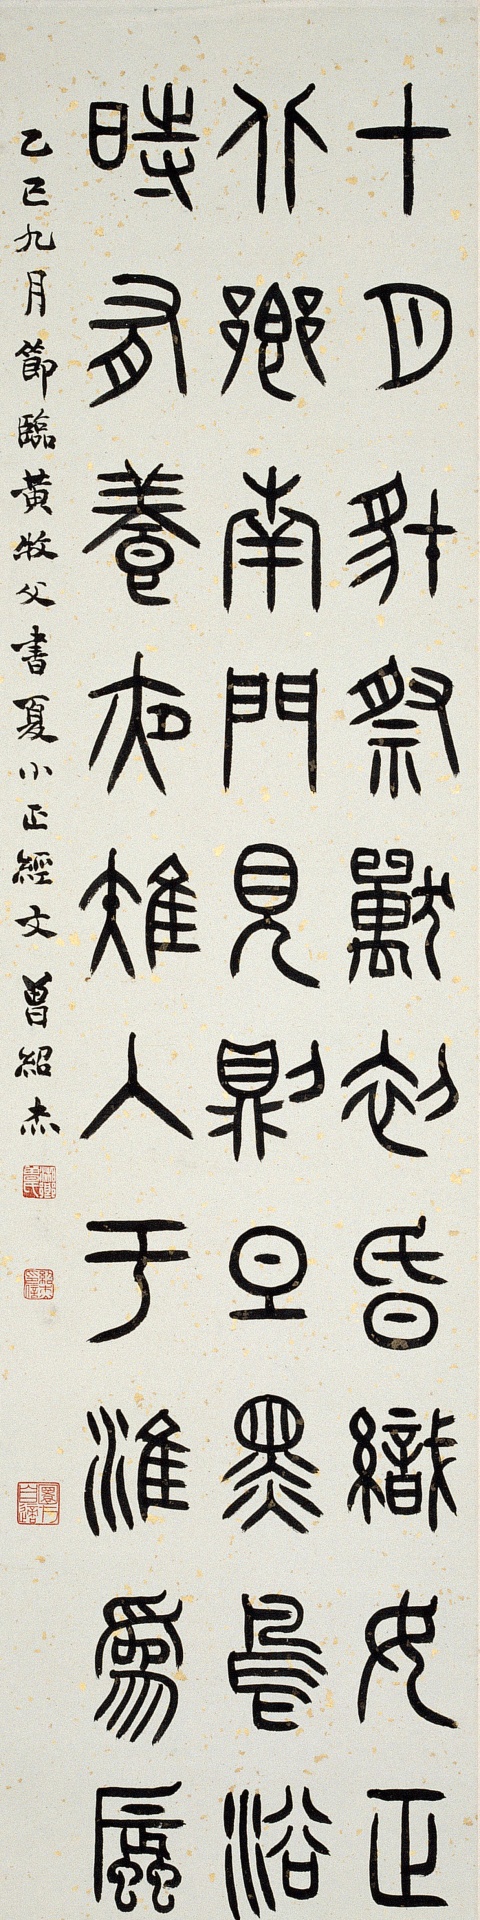 十月豺祭獸初昏織女正
北鄉南門見則旦黑鳥浴
時有養夜雉入于淮爲蜃
乙巳九月節臨黃牧父書夏小正經文 曾紹杰